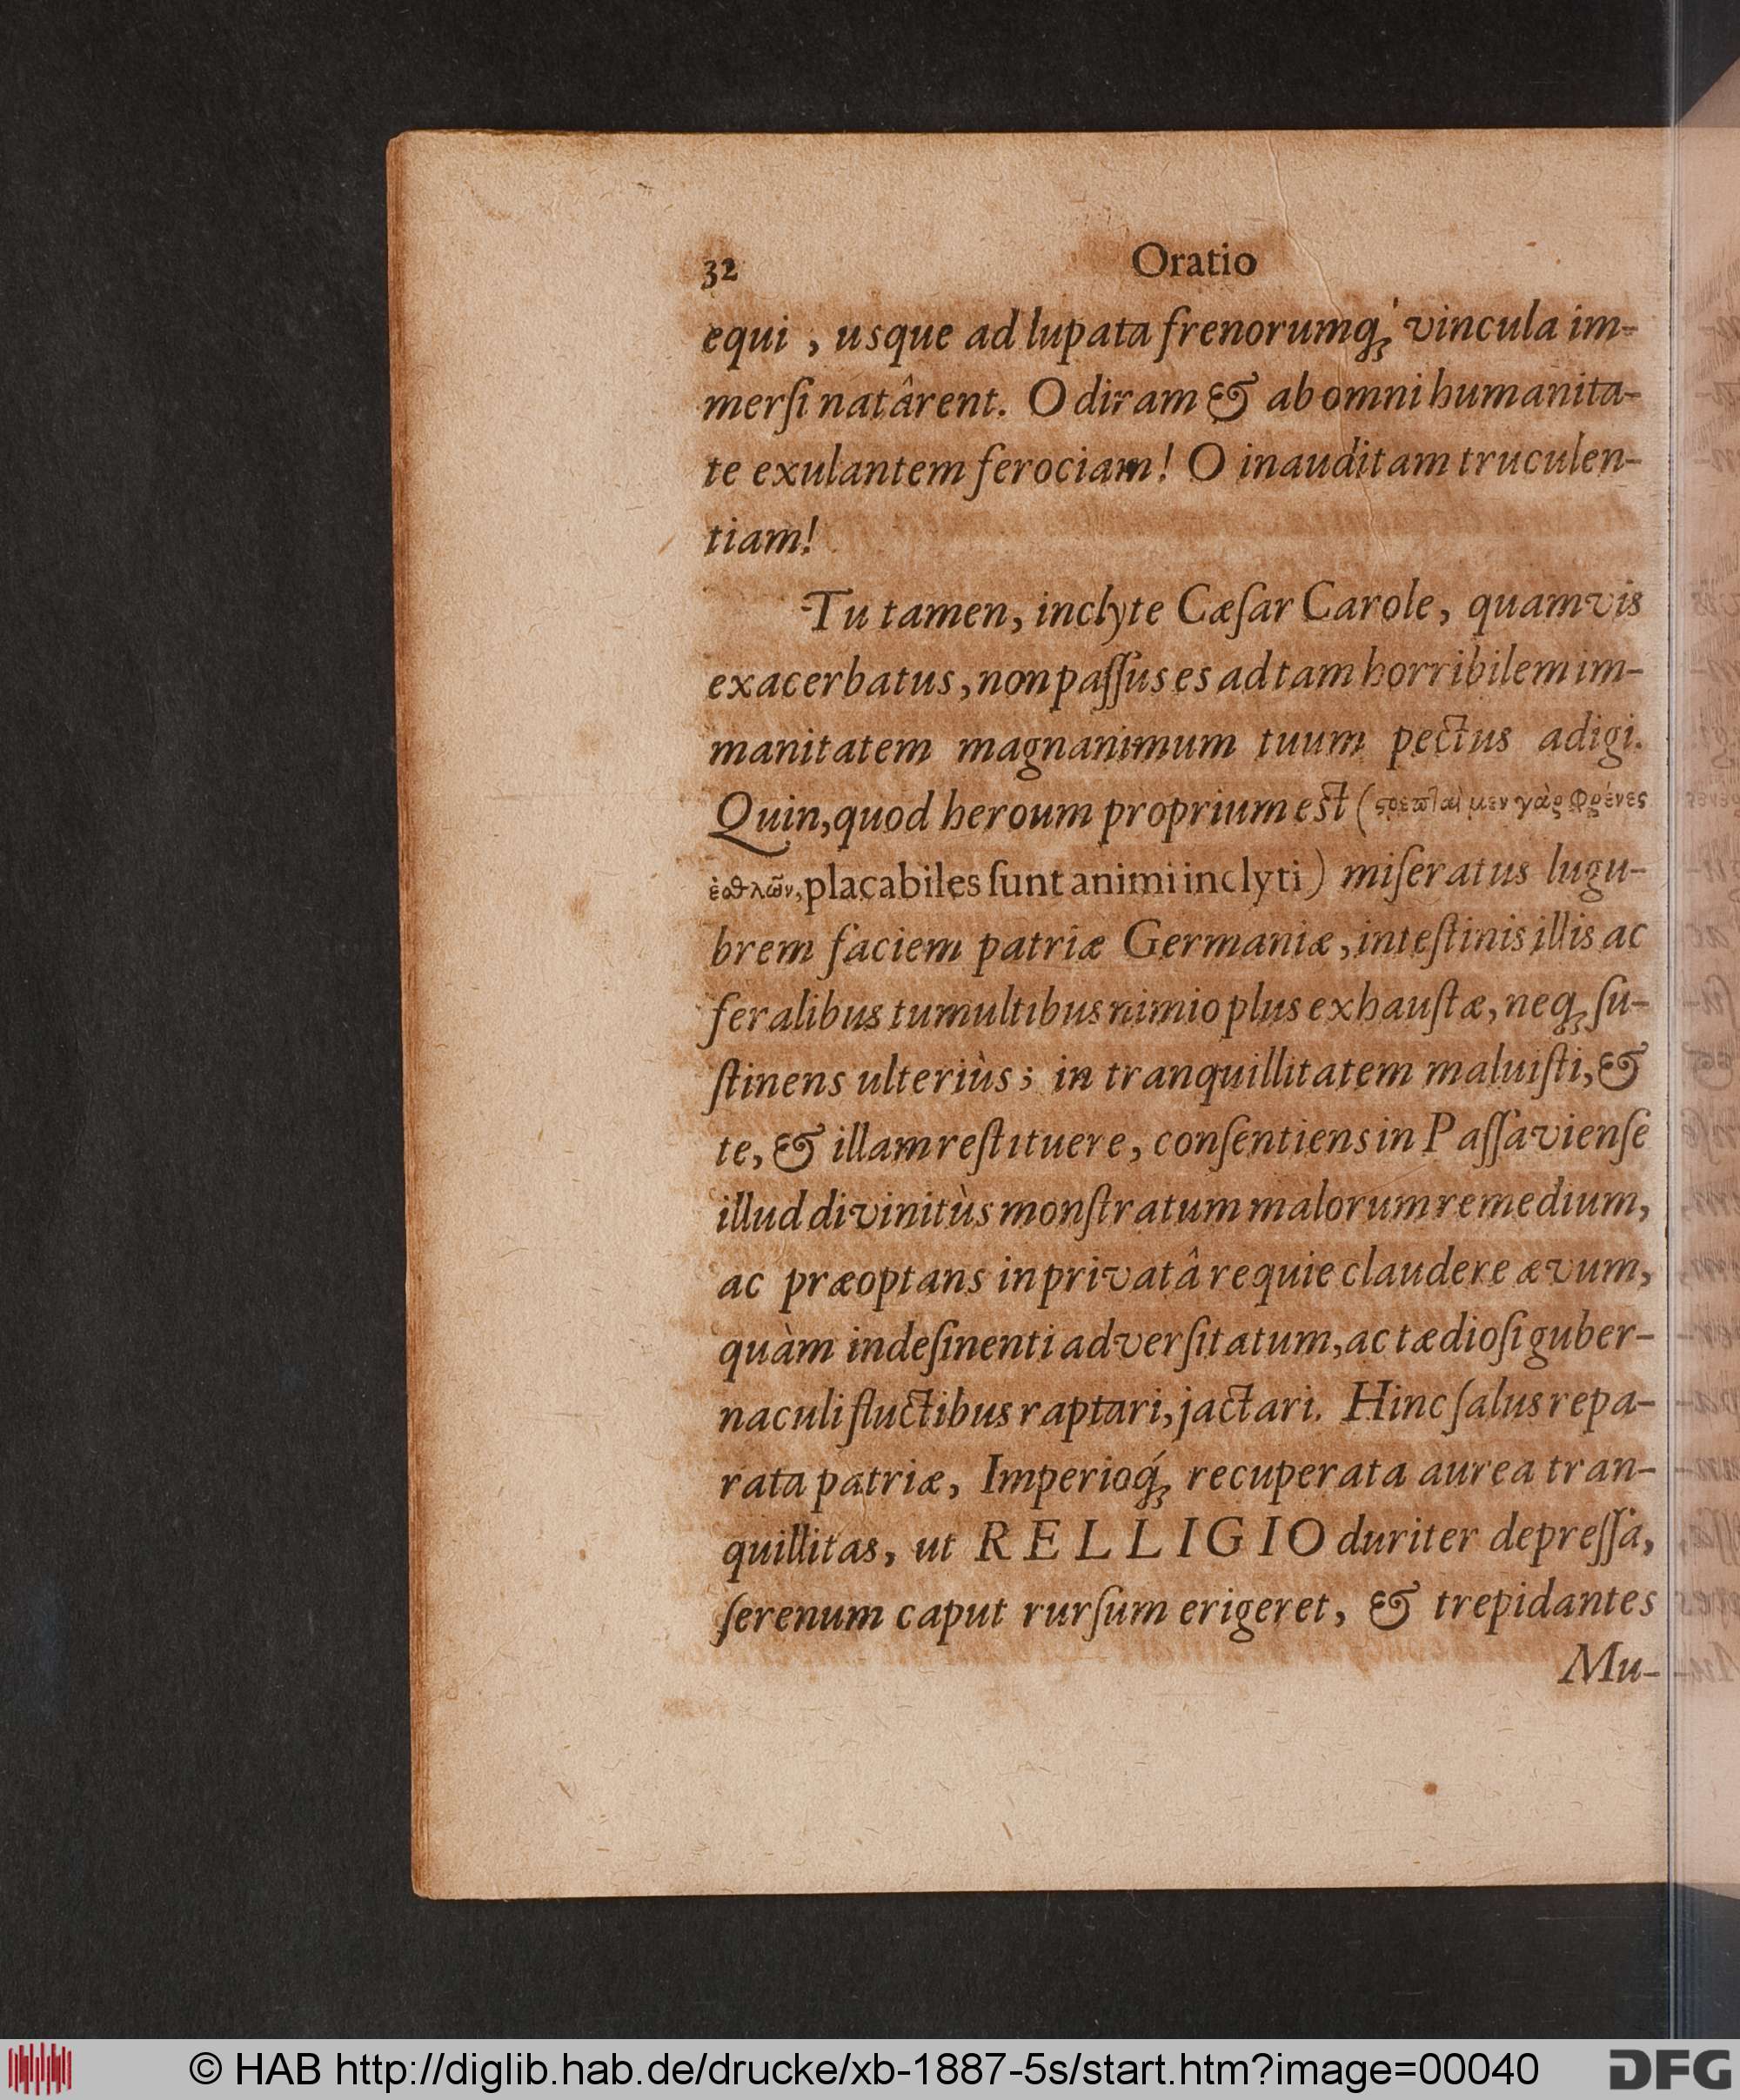 32 Oratio
equi , usque ad lupata frenorumq́; vincula im-
merſi natârent. O diram & ab omni humanita-
te exulantem ferociam! O inauditam truculen-
tiam!
Tu tamen, inclyte Cæſar Carole, quamvis
exacerbatus, non paſſus es ad tam horribilem im-
manitatem magnanimum tuum pectus adigi.
Quin, quod heroum proprium est (ϛρεπταὶ μεν γὰρ φρένες
ἐσθλῶν, placabiles ſunt animi inclyti) miſeratus lugu-
brem faciem patriæ Germaniæ, inteſtinis illis ac
feralibus tumultibus nimio plus exhauſtæ, neq; ſu-
ſtinens ulteriùs; in tranquillitatem maluiſti, &
te, & illam reſtituere, conſentiens in Paſſavienſe
illud divinitùs monſtratum malorum remedium,
ac præoptans in privatâ requie claudere ævum,
quàm indeſinenti adverſitatum, ac tædioſi guber-
naculi fluctibus raptari, jactari. Hinc ſalus repa-
rata patriæ, Imperioq́; recuperata aurea tran-
quillitas, ut RELLIGIO duriter depreſſa,
ſerenum caput rurſum erigeret, & trepidantes
Mu-
© HAB http://diglib.hab.de/drucke/xb-1887-5s/start.htm?image=00040
DFG